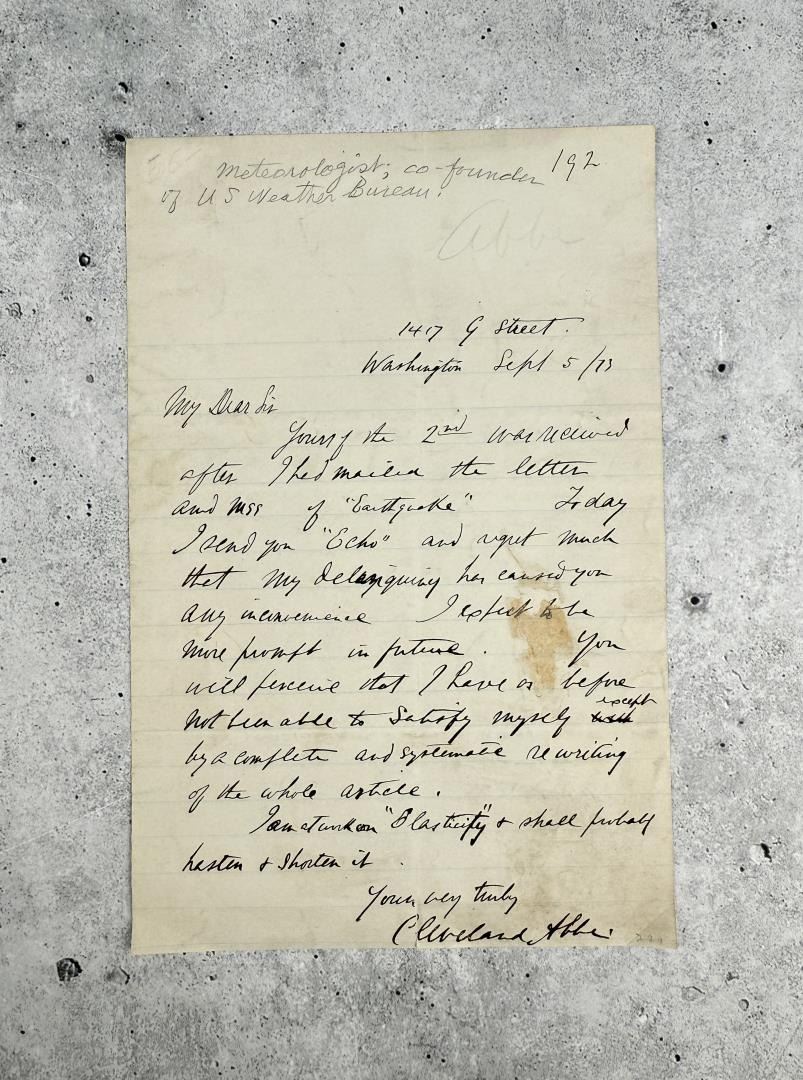 Meteorologist; co-founder 192
of US Weather Bureau.
Abbe
1417 G Street.
Washington Sept 5/73
My Dear Sir
Yours of the 2nd was received
after I had mailed the letter
and Mss of "Earthquake" Today
I send you "Echo" and regret much
that my delaying has caused you
any inconvenience I expect to be
more prompt in future. You
will perceive that I have as before
not been able to satisfy myself except
by a complete and systematic rewriting
of the whole article.
I am at work on "Elasticity" & shall probably
hasten & shorten it.
Yours very truly
Cleveland Abbe.